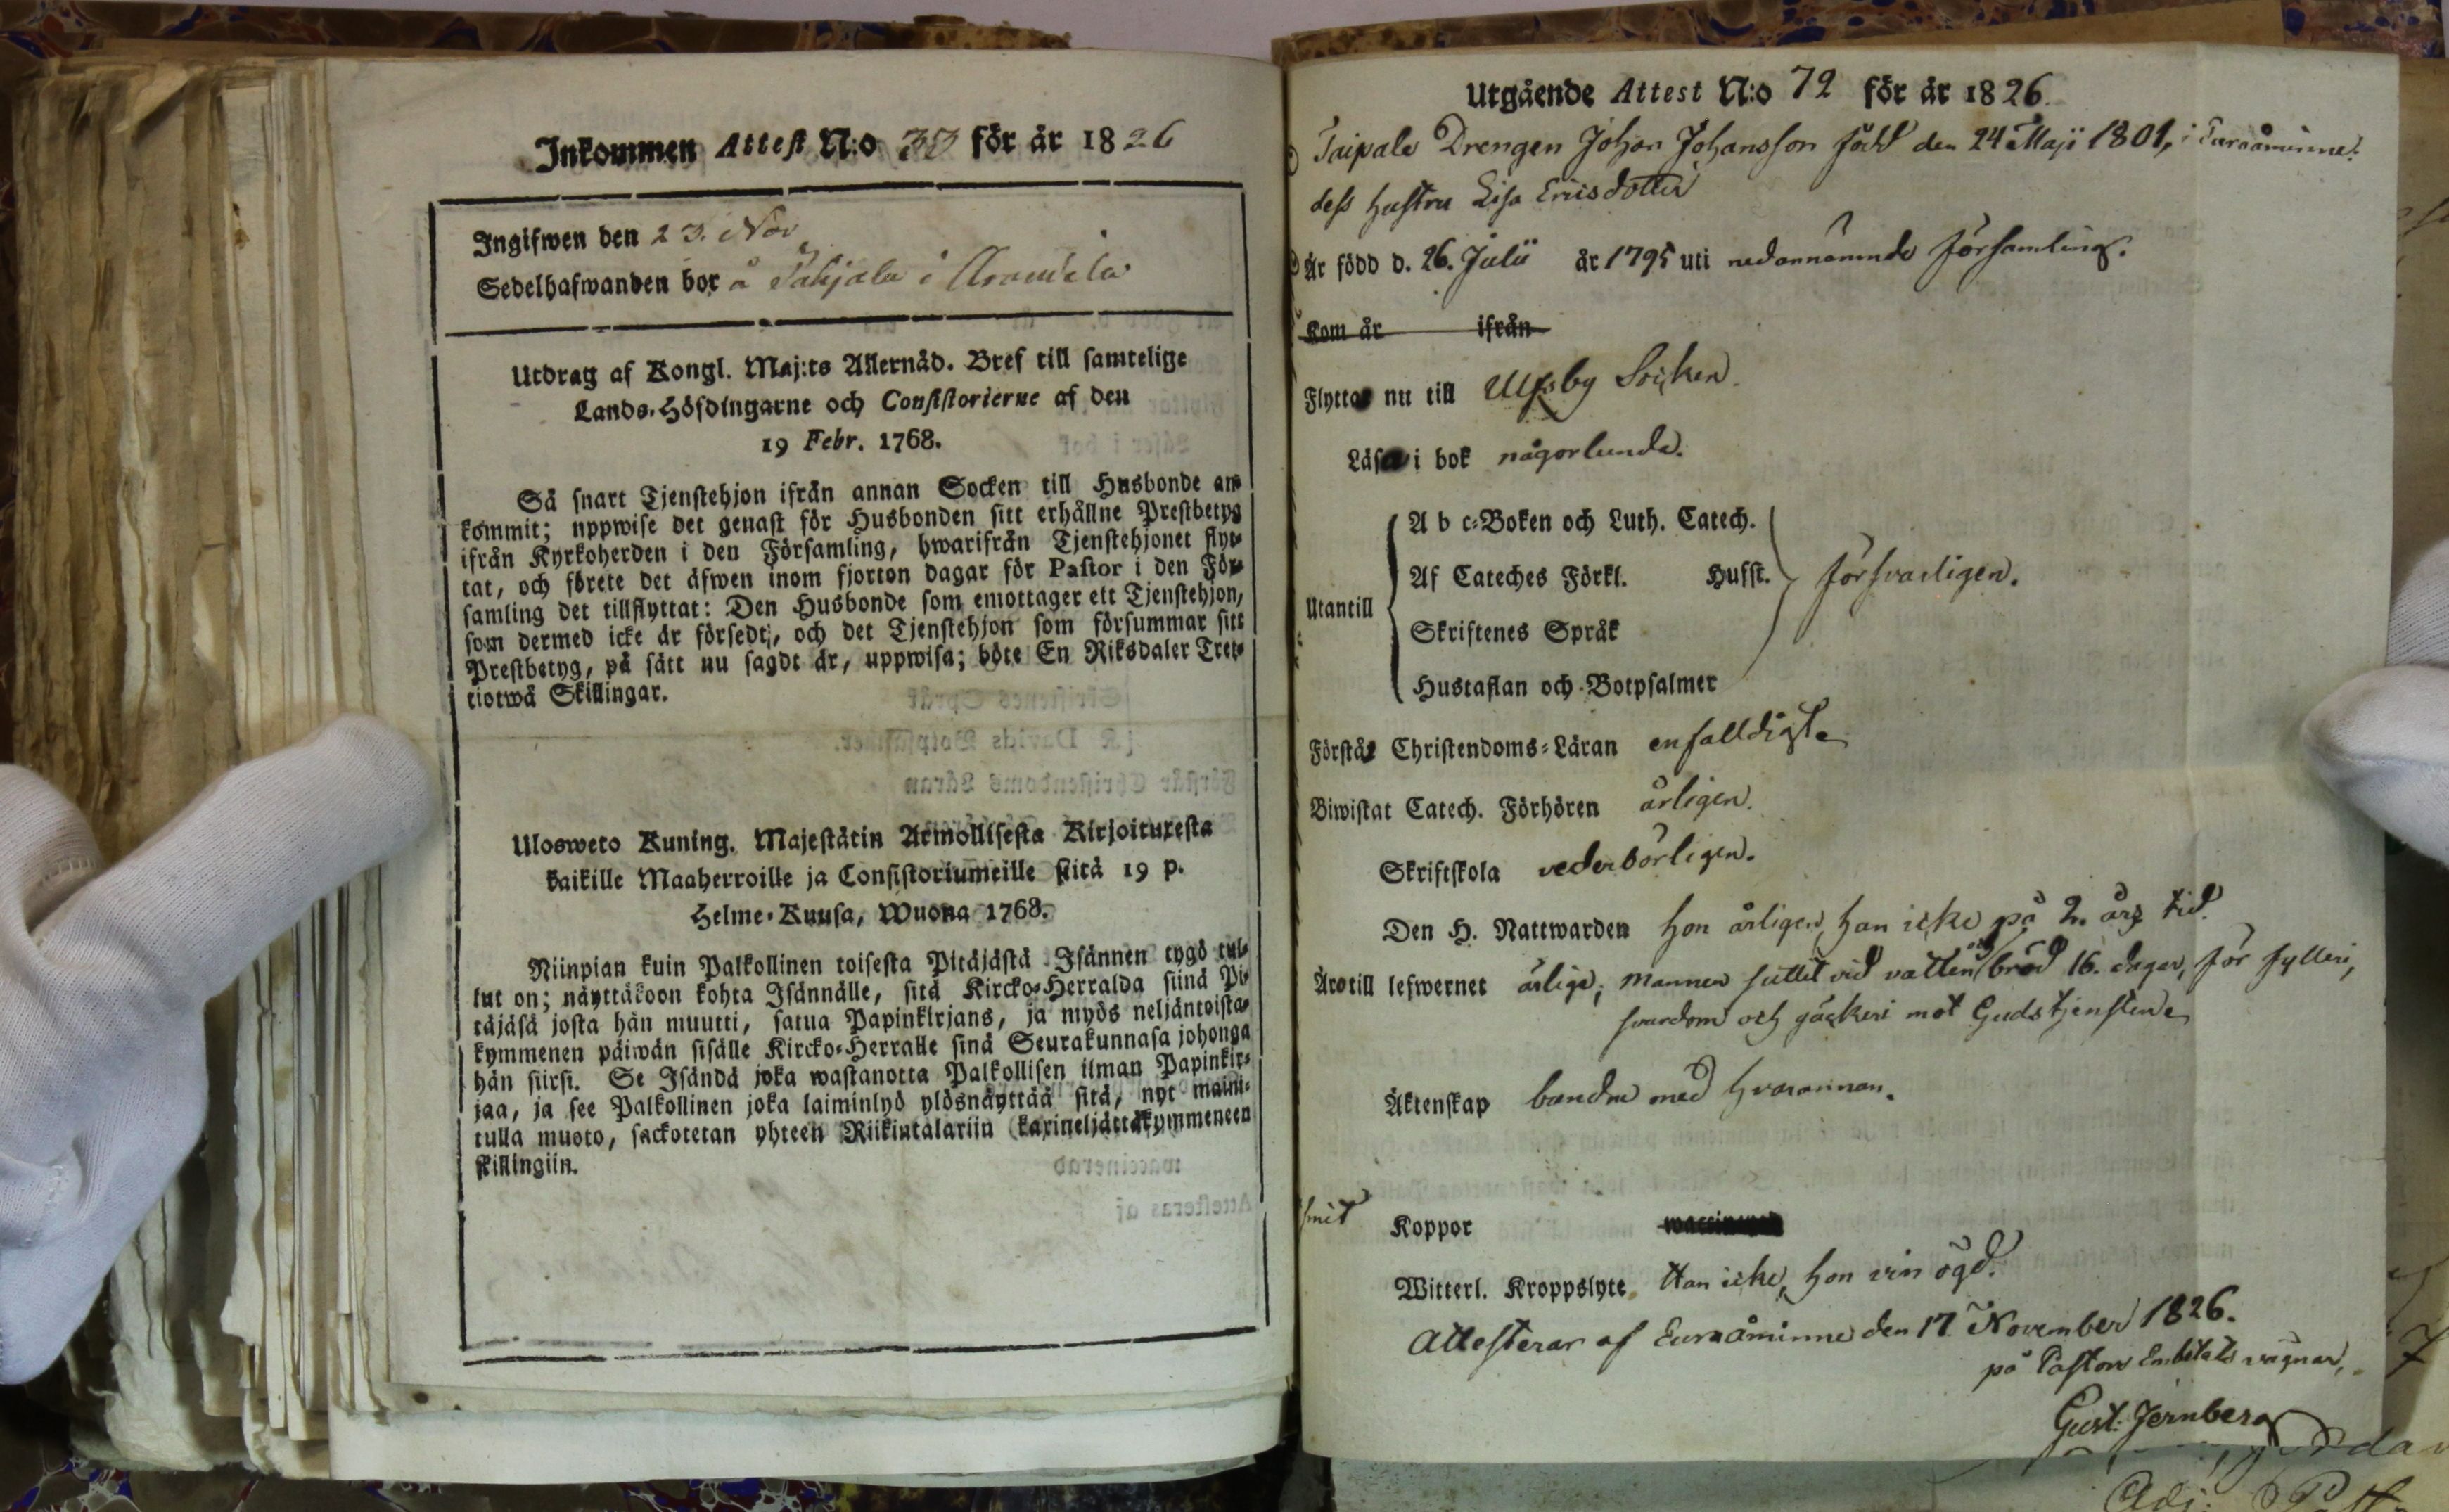 Inkommen Attest N:o 33 för år 1826
Ingifwen den 23. Nov
Sedelhafwanden bor å i
Utdrag af Kongl. Maj:ts Allernåd. Bref till samtelige
Lands-Höfdingarne och Consistorierne af den
19 Febr. 1768.
Så snart Tjenstehjon ifrån annan Socken till Husbonde an-
kommit; uppwise det genast för Husbonden sitt erhållne Prestbetyg
ifrån Kyrkoherden i den Församling, hwarifrån Tjenstehjonet flyt-
tat, och förete det äfwen inom fjorton dagar för Pastor i den För-
samling det tillflyttat: Den Husbonde som emottager ett Tjenstehjon,
som dermed icke är försedt, och det Tjenstehjon som försummar sitt
Prestbetyg, på sätt nu sagdt är, uppwisa; böte En Riksdaler Tret-
tiotwå Skillingar.
Ulosweto Kuning. Majestätin Armollisesta Kirjoituxesta
kaikille Maaherroille ja Consistoriumeille siitä 19 p.
Helme-Kuusa, Wuona 1768.
Niinpian kuin Palkollinen toisesta Pitäjästä Isännen tygö tul-
lut on; näyttäkoon kohta Isännälle, sitä Kircko-Herralda siinä Pi-
täjäsä josta hän muutti, satua Papinkirjans, ja myös neljäntoista-
kymmenen päiwän sisälle Kircko-Herralle sinä Seurakunnasa johonga
hän siirsi. Se Isändä joka wastanotta Palkollisen ilman Papinkir-
jaa, ja see Palkollinen joka laiminlyö ylösnäyttää sitä, nyt maini-
tulla muoto, sackotetan yhteen Riikintalariin kaxineljättäkymmeneen
skillingiin.
Utgående Attest N:o 72 för år 1826.
Taipale Drengen Johan Johansson född den 24 Maji 1801, i Euraåminne.
dess hustru Lisa Ericsdotter
Är född d. 26. Julii år 1795 uti nedannämnde församling.
Kom år ifrån
Flytta nu till Ulfsby Socken.
Läsa i bok någorlunda.
A b c-Boken och Luth. Catech.
Af Cateches Förkl. Husst. försvarligen.
Utantill
Skriftenes Språk
Hustaflan och Botpsalmer
Förstår Christendoms-Läran enfalldigt
Biwistat Catech. Förhören årligen.
Skriftskola vederbörligen.
Den H. Nattwarden hon årligen, han icke på 2. års tid.
Äro till lefwernet ärlige, mannen suttit vid vatten och bröd 16. dagar, för fylleri,
svardom och gäckeri mot Gudstjensten
Äktenskap bundne med hvarannan.
Koppor
Witterl. Kroppslyte Han icke, hon vin ögd.
Attesterar af Euraåminne den 17. November 1826.
på Pastors Embetets vägnar,
Gust. Jernberg